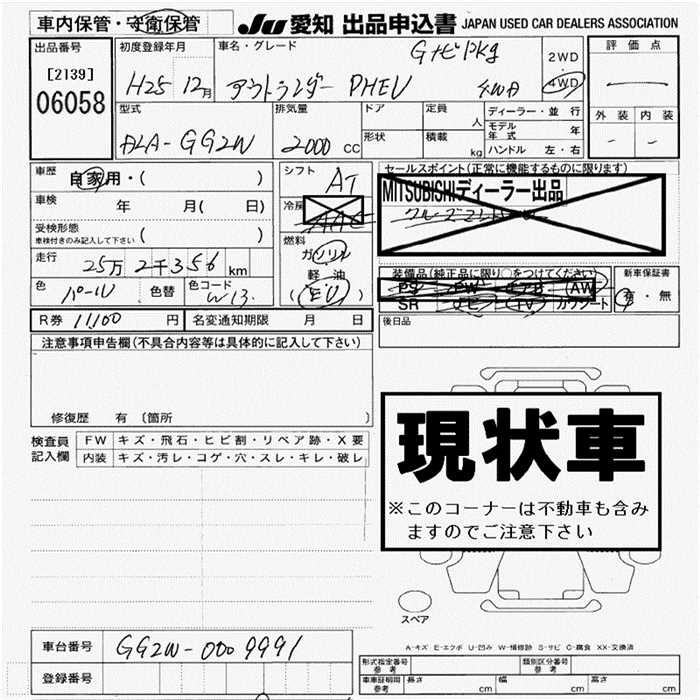 車内保管・守衛保管
JU 愛知 出品申込書 JAPAN USED CAR DEALERS ASSOCIATION
出品番号
[2139]
06058
初度登録年月
H25 12月
車名・グレード
Gナビpkg
アウトランダー PHEV 4WD
2WD
4WD
評価点
外装 内装
型式
DLA-GG2W
排気量
2000 cc
ドア
形状
定員
人
積載
kg
ディーラー・並行
モデル年式 年
ハンドル 左・右
車歴
自家用・( )
車検
年 月( 日)
受検形態
車検付きのみ記入して下さい ( )
走行
25万2千356 km
色
パール
色替
色コード
W13
シフト
AT
冷房
AAC
燃料
ガソリン
軽油
(EV)
セールスポイント(正常に機能するものに限ります)
MITSUBISHIディーラー出品
装備品(純正品に限り○をつけてください)
PS PW エアB AW
SR ナビ TV カワシート
新車保証書
有・無
R券 11,100 円 名変通知期限 月 日
後日品
注意事項申告欄(不具合内容等は具体的に記入して下さい)
修復歴 有 〔箇所 〕
検査員記入欄
FW キズ・飛石・ヒビ割・リペア跡・X要
内装 キズ・汚レ・コゲ・穴・スレ・キレ・破レ
現状車
※このコーナーは不動車も含み
ますのでご注意下さい
スペア
A-キズ E-エクボ U-凹み W-補修跡 S-サビ C-腐食 XX-交換済
車台番号
GG2W-0009991
登録番号
形式指定番号 参考
類別区分番号 参考
車車証明用 参考 長さ cm 幅 cm 高さ cm